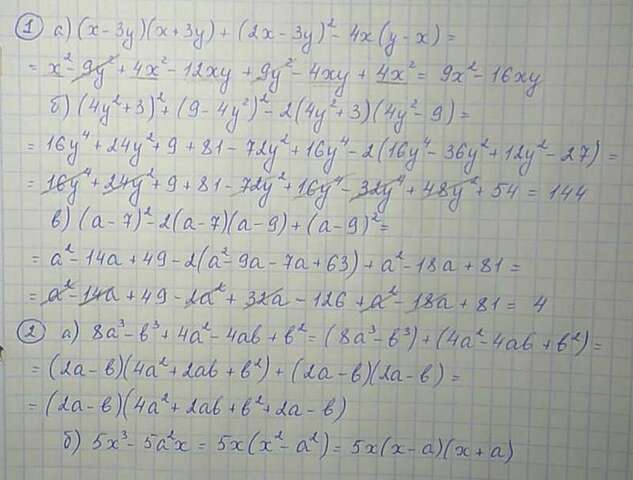 ① а) (x-3y)(x+3y) + (2x-3y)² - 4x(y-x) =
= x² - 9y² + 4x² - 12xy + 9y² - 4xy + 4x² = 9x² - 16xy
б) (4y²+3)² + (9-4y²)² - 2(4y²+3)(4y²-9) =
= 16y⁴ + 24y² + 9 + 81 - 72y² + 16y⁴ - 2(16y⁴ - 36y² + 12y² - 27) =
= 16y⁴ + 24y² + 9 + 81 - 72y² + 16y⁴ - 32y⁴ + 48y² + 54 = 144
в) (a-7)² - 2(a-7)(a-9) + (a-9)² =
= a² - 14a + 49 - 2(a² - 9a - 7a + 63) + a² - 18a + 81 =
= a² - 14a + 49 - 2a² + 32a - 126 + a² - 18a + 81 = 4
② а) 8a³ - b³ + 4a² - 4ab + b² = (8a³ - b³) + (4a² - 4ab + b²) =
= (2a-b)(4a² + 2ab + b²) + (2a-b)(2a-b) =
= (2a-b)(4a² + 2ab + b² + 2a - b)
б) 5x³ - 5a²x = 5x(x² - a²) = 5x(x-a)(x+a)